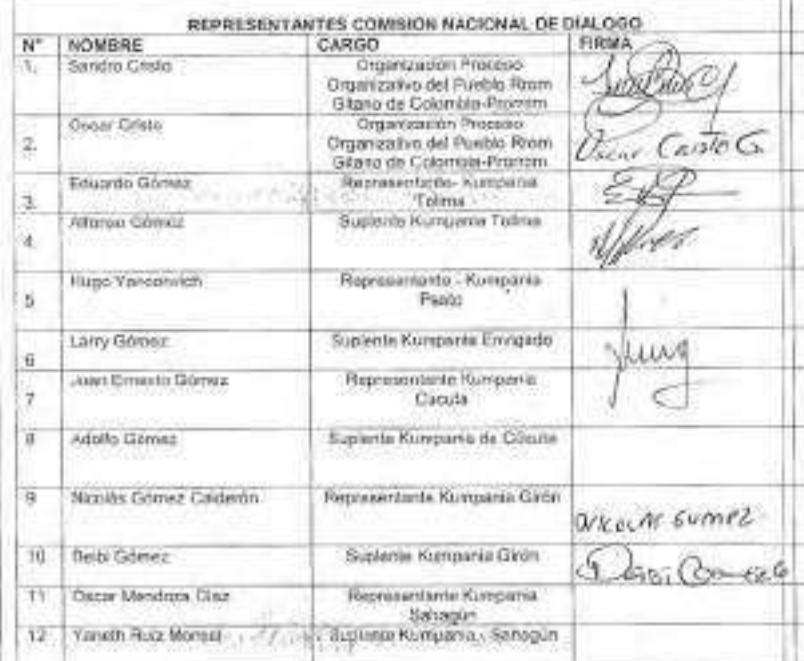 REPRESENTANTES COMISION NACIONAL DE DIALOGO
N° NOMBRE CARGO FIRMA
1. Sandro Cristo Organización Proceso
Organizativo del Pueblo Rrom
Gitano de Colombia-Prorrom
2. Oscar Cristo Organización Proceso
Organizativo del Pueblo Rrom
Gitano de Colombia-Prorrom
Oscar Cristo G.
3. Eduardo Gómez Representante- Kumpania
Tolima
4. Alfonso Gómez Suplente Kumpania Tolima
5 Hugo Representante - Kumpania
Pasto
6 Larry Gómez Suplente Kumpania Envigado
7 Juan Ernesto Gómez Representante Kumpania
Cúcuta
8 Adolfo Gómez Suplente Kumpania de Cúcuta
9 Nicolás Gómez Calderón Representante Kumpania Girón
10 Deibi Gómez Suplente Kumpania Girón
11 Oscar Mendoza Díaz Representante Kumpania
Sahagún
12 Yaneth Ruiz Suplente Kumpania - Sahagún